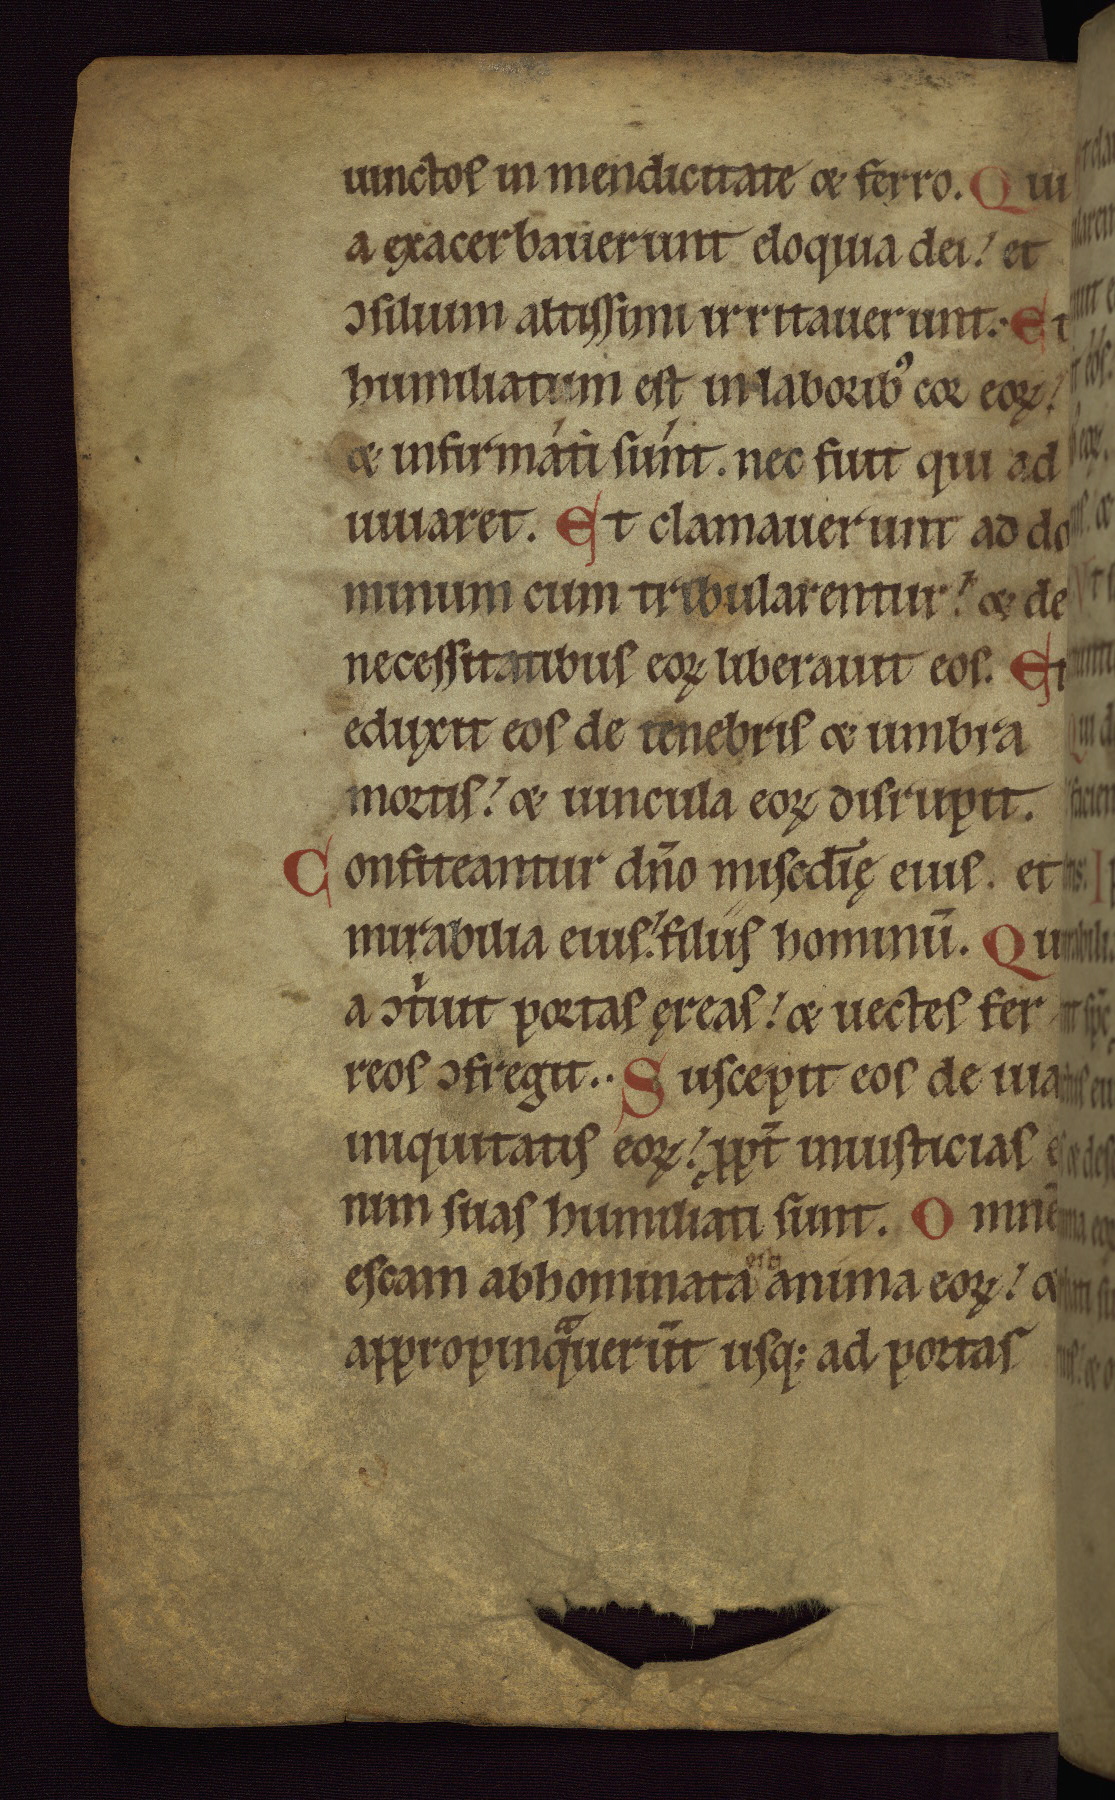 uinctos in mendicitate & ferro. Qui
a exacerbauerunt eloquia dei! et
ɔsilium altissimi irritauerunt. Et
humiliatum est in laborib' cor eoꝝ!
& infirmati sunt. nec fuit qui ad
iuuaret. Et clamauerunt ad do
minum cum tribularentur! & de
necessitatibus eoꝝ liberauit eos. Et
eduxit eos de tenebris & umbra
mortis! & uincula eoꝝ disrupit.
Confiteantur dn̄o misc̄dīę eius. et
mirabilia eius! filiis hominū. Qui
a ɔtͥuit portas ęreas! & uectes fer
reos ɔfregit. Suscepit eos de uia
iniquitatis eoꝝ! ꝓpt̄ iniusticias
nim suas humiliati sunt. Omnē
escam abhominata anima eoꝝ! &
appropinqͣuerūt usq; ad portas